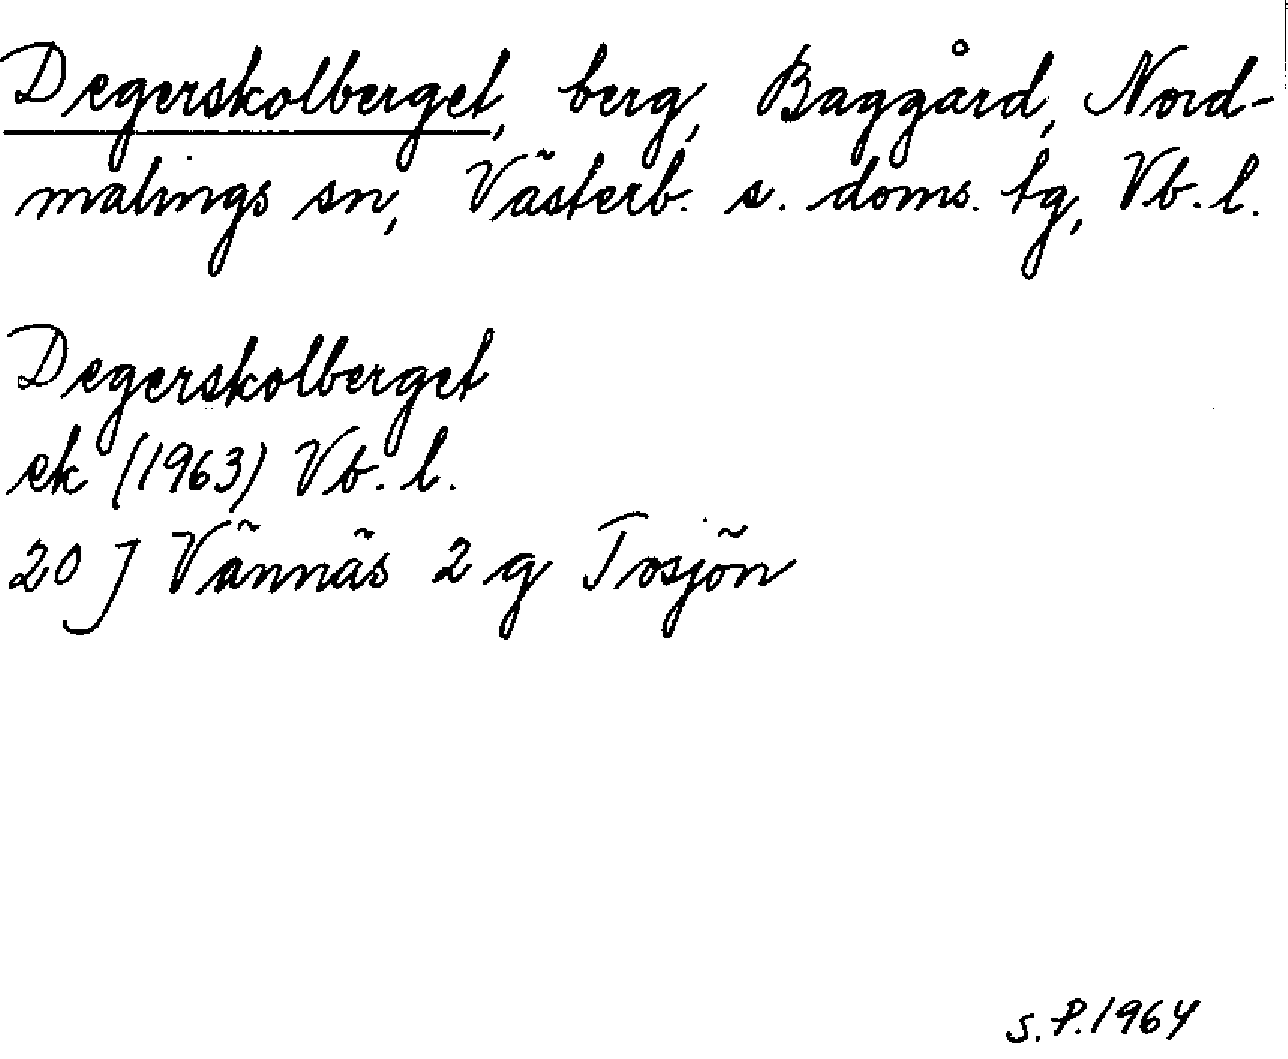 Degerskolberget, berg, Baggård, Nord-
malings sn, Västerb. s. doms. tg, Vb. l.
Degerskolberget
ek (1963) Vb. l.
20 J Vännäs 2 g Tosjön
S.P. 1964